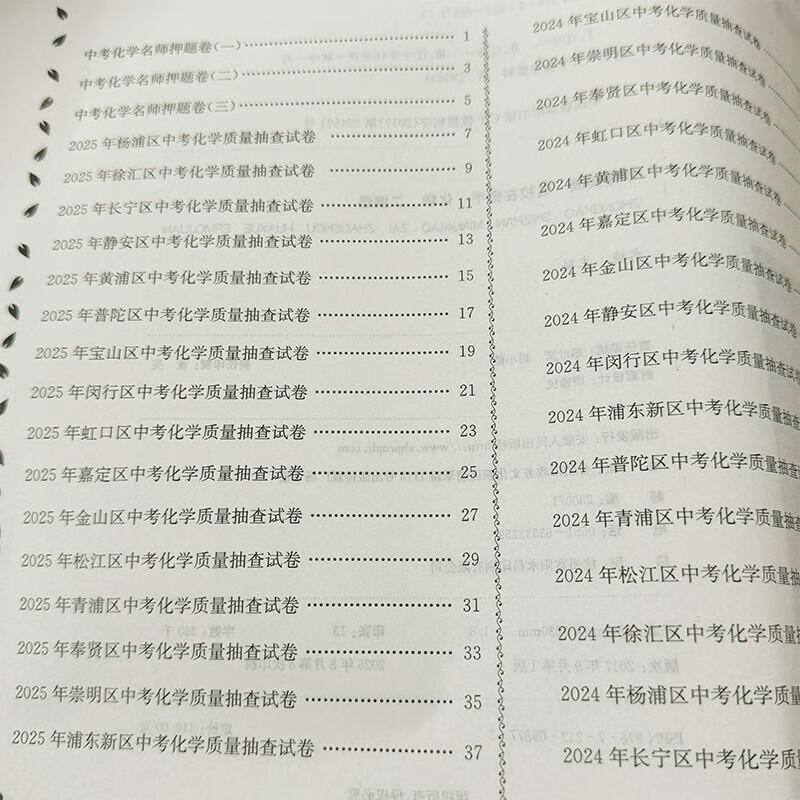 中考化学名师押题卷(一)…………………… 1
中考化学名师押题卷(二)…………………… 3
中考化学名师押题卷(三)…………………… 5
2025 年杨浦区中考化学质量抽查试卷 ………… 7
2025 年徐汇区中考化学质量抽查试卷 ………… 9
2025 年长宁区中考化学质量抽查试卷 ………… 11
2025 年静安区中考化学质量抽查试卷 ………… 13
2025 年黄浦区中考化学质量抽查试卷 ………… 15
2025 年普陀区中考化学质量抽查试卷 ………… 17
2025 年宝山区中考化学质量抽查试卷 ………… 19
2025 年闵行区中考化学质量抽查试卷 ………… 21
2025 年虹口区中考化学质量抽查试卷 ………… 23
2025 年嘉定区中考化学质量抽查试卷 ………… 25
2025 年金山区中考化学质量抽查试卷 ………… 27
2025 年松江区中考化学质量抽查试卷 ………… 29
2025 年青浦区中考化学质量抽查试卷 ………… 31
2025 年奉贤区中考化学质量抽查试卷 ………… 33
2025 年崇明区中考化学质量抽查试卷 ………… 35
2025 年浦东新区中考化学质量抽查试卷 ………… 37
2024 年宝山区中考化学质量抽查试卷
2024 年崇明区中考化学质量抽查试卷
2024 年奉贤区中考化学质量抽查试卷
2024 年虹口区中考化学质量抽查试卷
2024 年黄浦区中考化学质量抽查试卷
2024 年嘉定区中考化学质量抽查试卷
2024 年金山区中考化学质量抽查试卷
2024 年静安区中考化学质量抽查试卷
2024 年闵行区中考化学质量抽查试
2024 年浦东新区中考化学质量抽查
2024 年普陀区中考化学质量抽查
2024 年青浦区中考化学质量抽
2024 年松江区中考化学质量抽
2024 年徐汇区中考化学质量
2024 年杨浦区中考化学质量
2024 年长宁区中考化学质